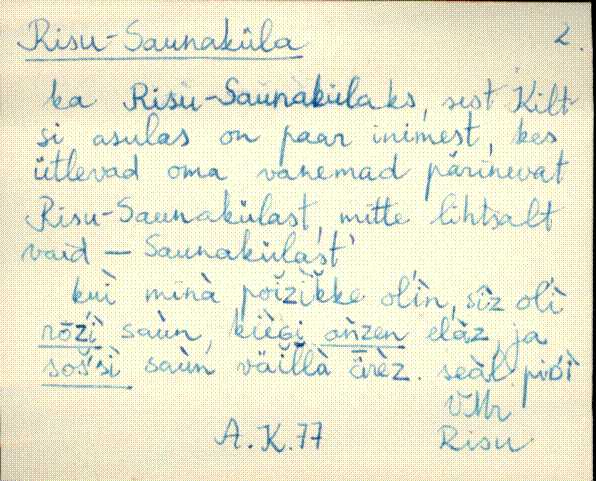 Risu-Saunaküla 2.
ka Risu-Saunakülaks, sest Kilt-
si asulas on paar inimest, kes
ütlevad oma vanemad pärinevat
Risu-Saunakülast, mitte lihtsalt
vaid — Saunakülast
kui minà poizìkke olìn, sīz olì
rōzì saùn, kiègi
elàz, ja
saùn seàl
VMr
A.K.77 Risu